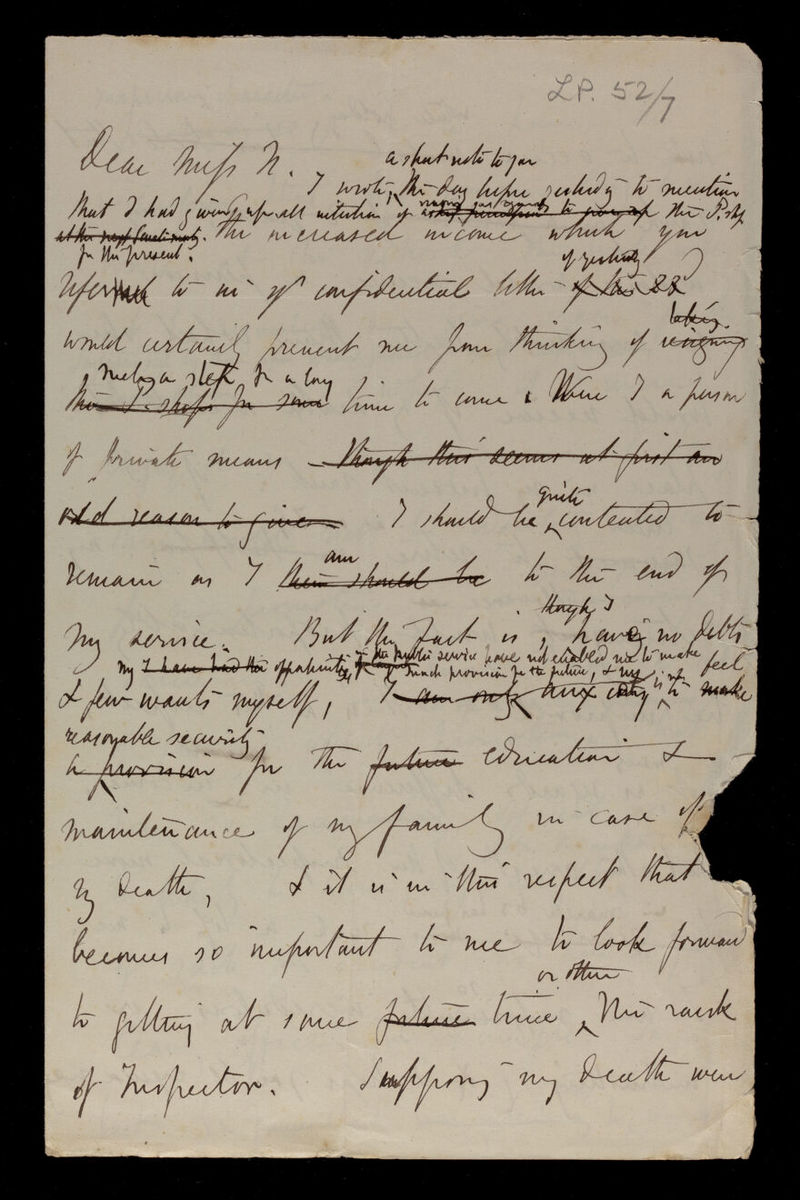 LP. 52/7
Dear Miss N.
a short note to you
I wrote, the day before yesterday to mention
that I had given up all intention of the P.ship
at the next
for the present. The increased income which you
of yesterday
refer to in yr confidential letter of the 22
taking
would certainly prevent me from thinking of resigning
such a step for a long
the P. ship for some time to come. Were I a person
of private means though this seems at first an
odd reason to give I should be quite contented to
am
remain as I then should be to the end of
though I
my service. But the fact is, have no debts
my I have had the opportunities of the public service have not enabled me to make
much provision for the future, & my
& few wants myself, I am only anxiety is to make feel
reasonable security
a provision for the future education &
maintenance of my family in case of
my death, & it is in this respect that
becomes so important to me to look forward
or other
to getting at some future time the rank
of Inspector. Supposing my death were